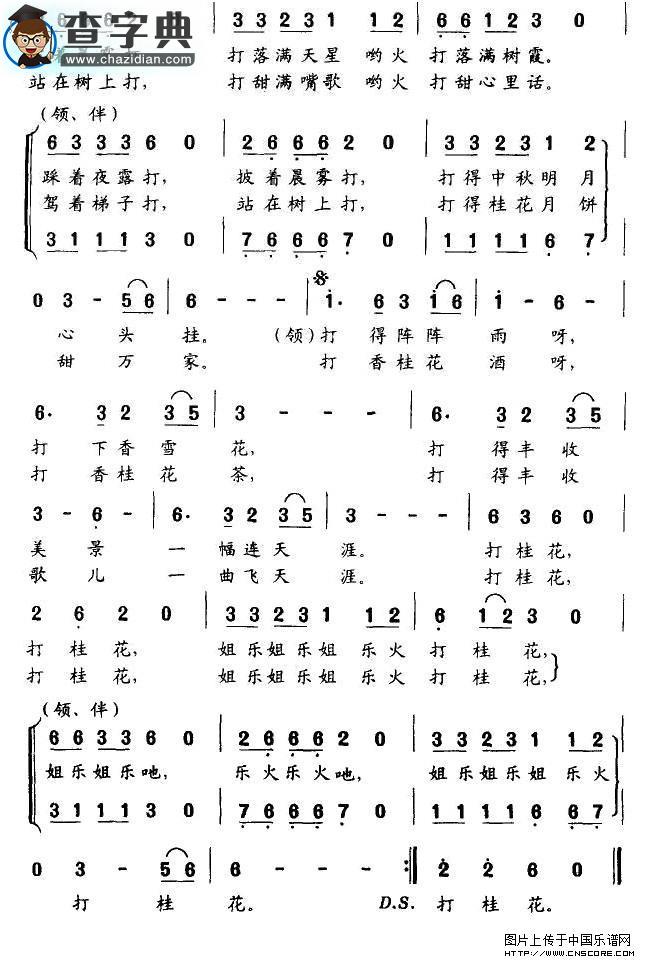 查字典
www.chazidian.com
3 3 2 3 1 1 2 | 6 6 1 2 3 0 |
打落满天星哟火 打落满树霞。
站在树上打, 打甜满嘴歌 哟火 打甜心里话。
(领、伴)
6 3 3 3 6 0 | 2 6 6 6 2 0 | 3 3 2 3 1 2
踩着夜露打, 披着晨雾打, 打得中秋明月
驾着梯子打, 站在树上打, 打得桂花月饼
3 1 1 1 3 0 | 7 6 6 6 7 0 | 1 1 1 1 6 7
0 3 - 5 6 | 6 - - - | 1· 6 3 1 6 | 1 - 6 -
心头挂。 (领)打得阵阵雨呀,
甜万家。 打香桂花酒呀,
6· 3 2 3 5 | 3 - - - | 6· 3 2 3 5
打下香雪花, 打得丰收
打香桂花茶, 打得丰收
3 - 6 - | 6· 3 2 3 5 | 3 - - - | 6 3 6 0
美景一幅连天涯。 打桂花,
歌儿一曲飞天涯。 打桂花,
2 6 2 0 | 3 3 2 3 1 1 2 | 6 1 2 3 0 |
打桂花, 姐乐姐乐姐 乐火 打桂花,
打桂花, 姐乐姐乐姐 乐火 打桂花,
(领、伴)
6 6 3 3 6 0 | 2 6 6 6 2 0 | 3 3 2 3 1 1 2
姐乐姐乐吔, 乐火乐火吔, 姐乐姐乐姐 乐火
3 1 1 1 3 0 | 7 6 6 6 7 0 | 1 1 1 1 6 6 7
0 3 - 5 6 | 6 - - - :| 2 2 6 0
打桂花。 D.S. 打桂花。
图片上传于中国乐谱网
HTTP://WWW.CNSCORE.COM